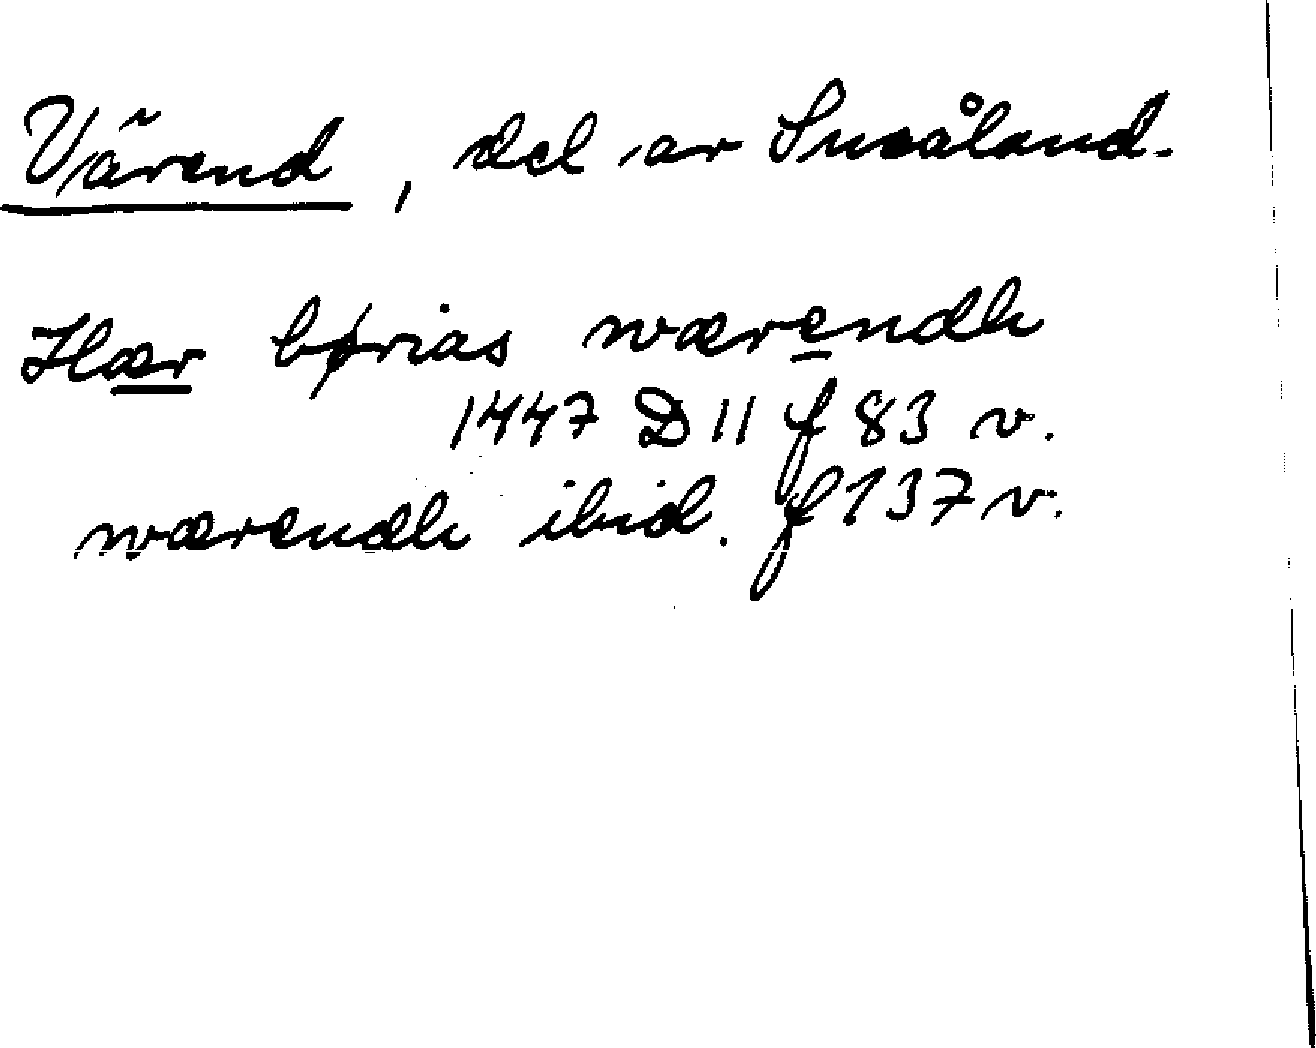 Värend, del av Småland.
Hær børias wærendh
1447 D 11 f 83 v.
wærendh ibid. f 137 v.